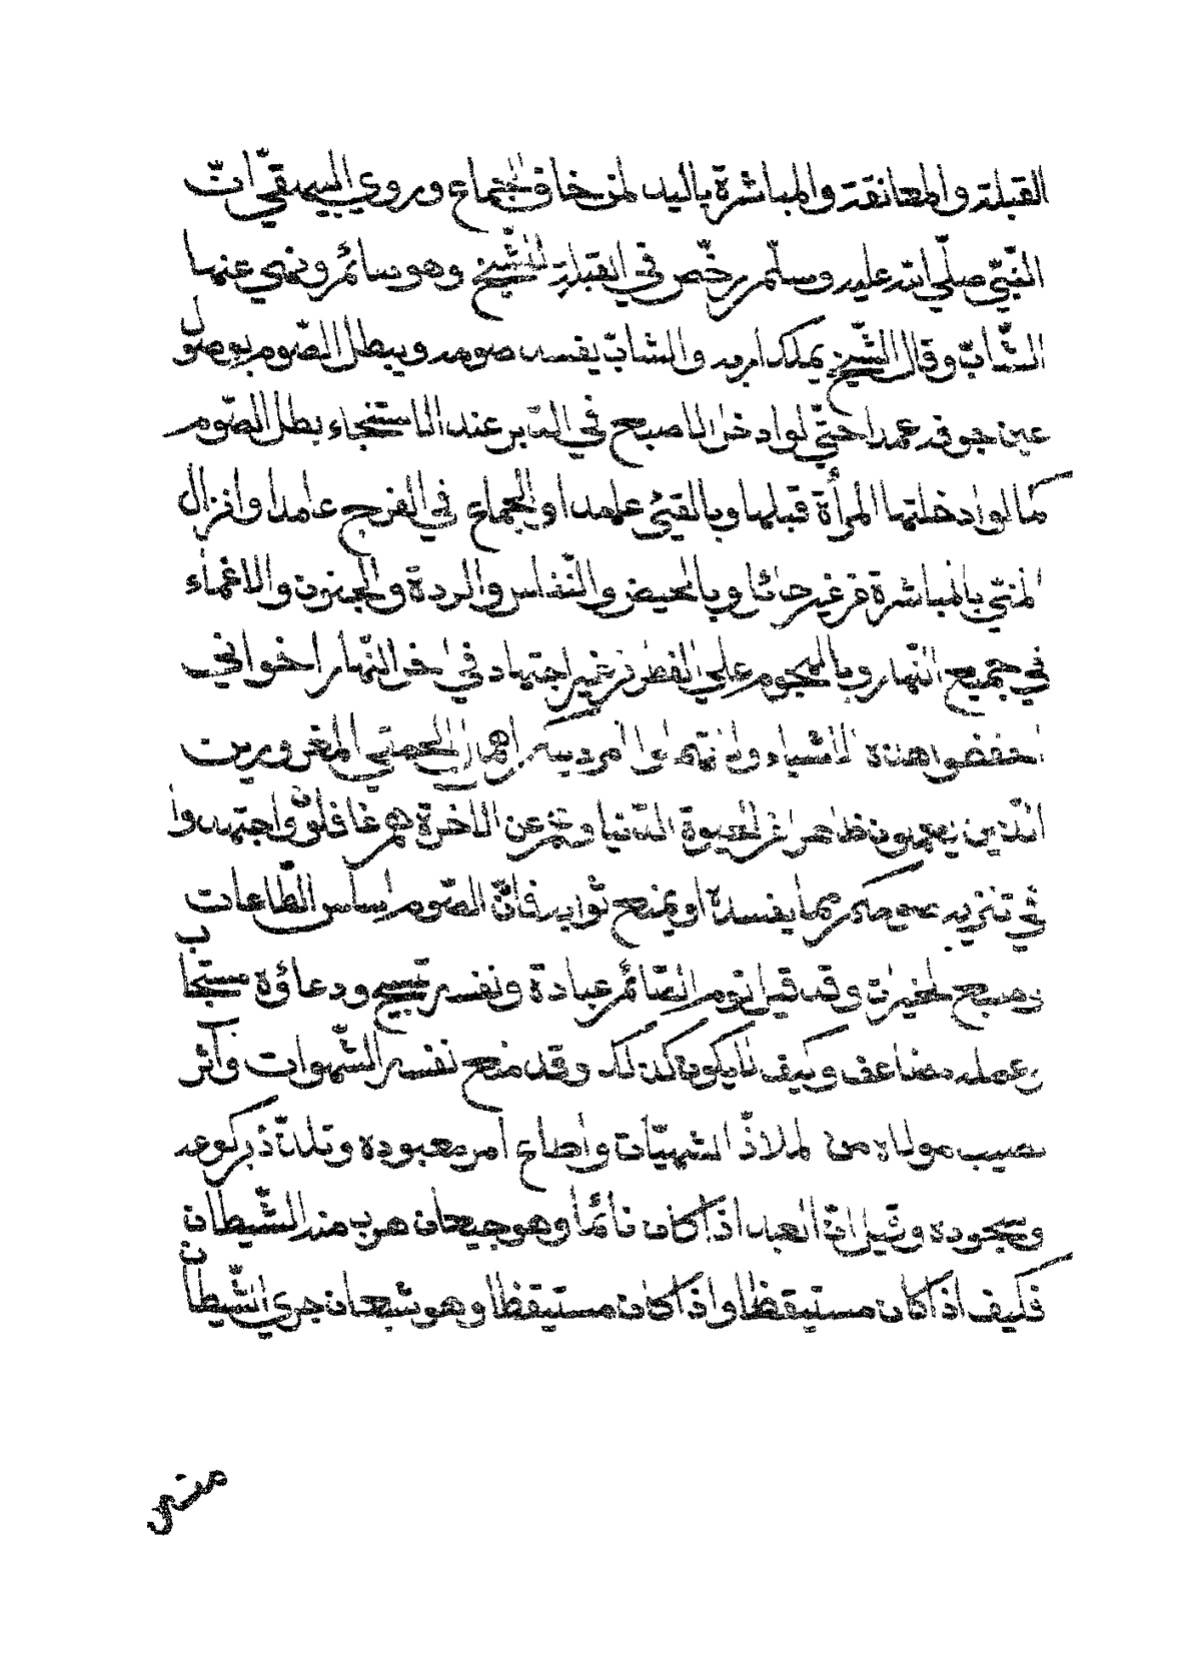 القبلة والمعانقة والمباشرة باليد لمن خاف الجماع وروي البيهقيّ انّ
النّبيّ صلّي الله عليه وسلّم رخّص في القبلة للشّيخ وهو صائم ونهي عنها
الشّابّ وقال الشّيخ يملك اربه والشابّ يفسد صومه ويبطل الصّوم بوصول
عين جوفه عمدا حتّي لو ادخل الاصبع في الدّبر عند الاستنجاء بطل الصّوم
كما لو ادخلتها المرأة قبلها وبالقئ عامدا والجماع في الفرج عامدا وانزال
المنيّ بالمباشرة من غير حائل وبالحيض والنّفاس والردة والجنون والاغماء
في جميع النّهار وبالهجوم علي الفطر من غير اجتهاد في اخر النّهار اخواني
احفظوا هذه الاشياء ولا تهملوا امر دينه اهمال الحمقي المغرورين
الّذين يعلمون ظاهرا من الحيوة الدّنيا وهم عن الاخرة هم غافلون واجتهدوا
في تنزيه صومكم مما يفسدة او يمنع ثوابه فانّ الصّوم اساس الطّاعات
ومنبع الخيرات وقد قيل نوم الصّائم عبادة ونفسه تسبيح ودعاؤه مستجاب
وعمله مضاعف وكيف لا يكون كذلك وقد منع نفسه الشّهوات وآثر
نصيب مولاه من الملاذّ الشهيّات واطاع امر معبوده وتلذّذ بركوعه
وسجوده وقيل انّ العبد اذا كان نائما وهو جيعان هرب منه الشّيطان
فكيف اذا كان مستيقظا واذا كان مستيقظا وهو شبعان جري الشّيطان